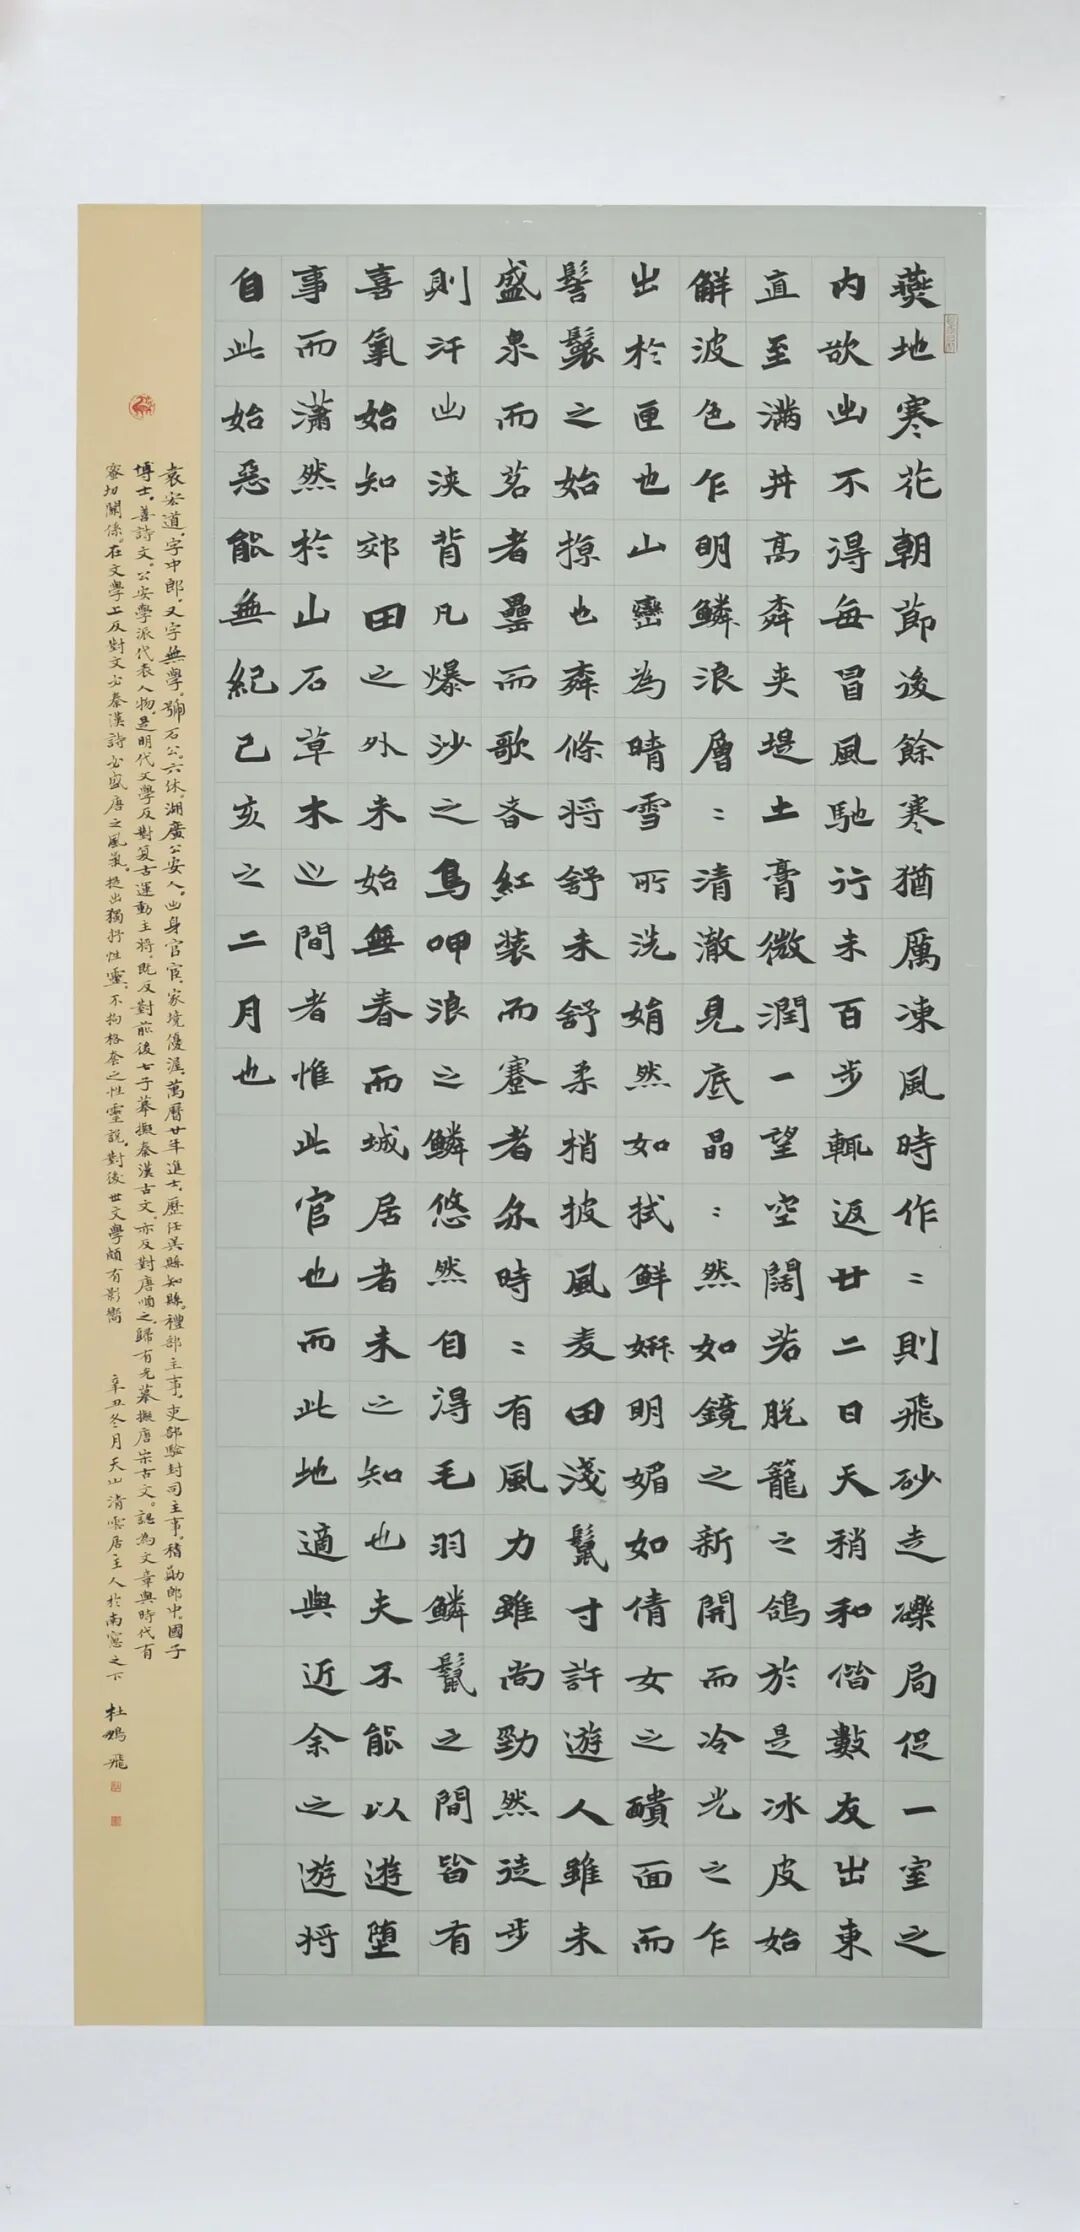 燕地寒花朝節後餘寒猶厲凍風時作〻則飛砂走礫局促一室之
內欲出不得每冒風馳行未百步輒返廿二日天稍和偕數友出東
直至滿井高桒夾堤土膏微潤一望空闊若脫籠之鴿於是冰皮始
解波色乍明鱗浪層〻清澈見底晶〻然如鏡之新開而冷光之乍
出於匣也山巒為晴雪所洗娟然如拭鮮妍明媚如倩女之靧面而
髻鬟之始掠也桒條將舒未舒柔梢披風麦田淺鬣寸許遊人雖未
盛泉而茗者罍而歌者紅装而蹇者亦時〻有風力雖尚勁然徒步
則汗出浹背凡爆沙之鳥呷浪之鱗悠然自得毛羽鱗鬣之間皆有
喜氣始知郊田之外未始無春而城居者未之知也夫不能以遊墮
事而瀟然於山石草木之間者惟此官也而此地適與近余之遊將
自此始惡能無紀己亥之二月也
袁宏道，字中郎，又字無學。號石公、六休。湖廣公安人。出身官宦，家境優渥，萬曆廿年進士，歷任吳縣知縣。禮部主事，吏部驗封司主事，稽勛郎中，國子
博士。善詩文。公安學派代表人物，是明代文學反對复古運動主將。既反對前後七子摹擬秦漢古文，亦反對唐順之、歸有光摹擬唐宋古文。認為文章與時代有
密切關係。在文學上反對文必秦漢詩必盛唐之風氣。提出獨抒性靈，不拘格套之性靈說，對後世文學頗有影響
辛丑冬月天山清雲居主人於南窻之下 杜鴻飛